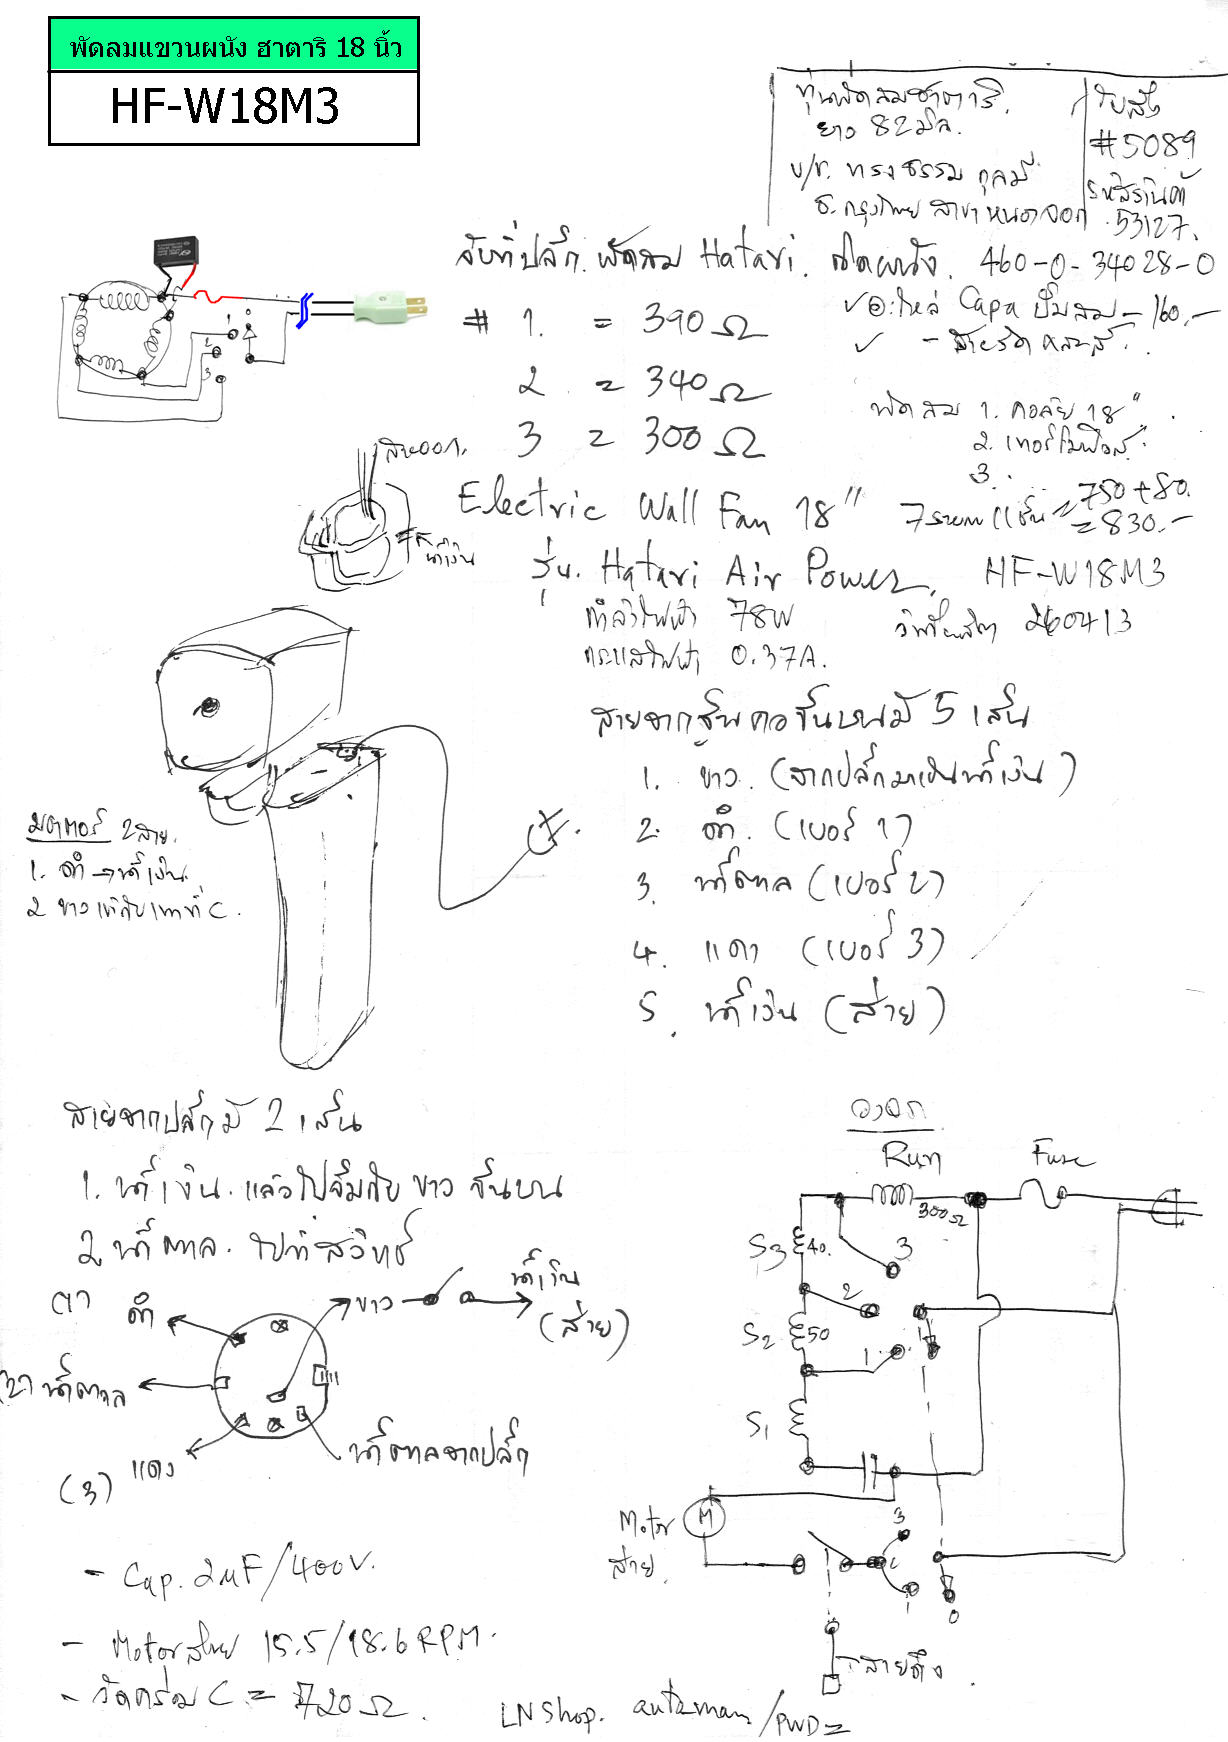 พัดลมแขวนผนัง ฮาตาริ 18 นิ้ว
HF-W18M3
ทุ่นพัดลมฮาตาริ
ยาว 82 มิล.
บ/ช. ทรงธรรม กุลมี
ธ.กรุงไทย สาขา หนองจอก
ใบสั่ง
#5089
รหัสร้านค้า
53127.
จับที่ปลั๊ก. พัดลม Hatari. ติดผนัง. 460-0-34028-0
# 1. = 390 Ω
2 = 340 Ω
3 = 300 Ω
อะไหล่ Capa ปั๊มลม = 160.-
พัดลม 1. คอล์ย 18"
2. เทอร์โมฟิวส์
3.
750+80.
= 830.-
1
2
3
0
สายออก.
น้ำเงิน
Electric Wall Fan 18"
รุ่น. Hatari Air Power. HF-W18M3
กำลังไฟฟ้า 78W
กระแสไฟฟ้า 0.37A.
260413
สายจากชุ้นคอขึ้นบนมี 5 เส้น
1. ขาว. (จากปลั๊กมาเป็นน้ำเงิน)
2. ดำ. (เบอร์ 1)
3. น้ำตาล (เบอร์ 2)
4. แดง (เบอร์ 3)
5. น้ำเงิน (ส่าย)
มอเตอร์ 2 สาย.
1. ดำ → น้ำเงิน
2 ขาว C.
สายจากปลั๊กมี 2 เส้น
1. น้ำเงิน. แล้วไปจั๊มกับ ขาว ขึ้นบน
2. น้ำตาล. ไปที่สวิทช์
(1) ดำ
ขาว
น้ำเงิน
(ส่าย)
(2) น้ำตาล
แดง
(3)
น้ำตาลจากปลั๊ก
- Cap. 2uF/400V.
- Motor ส่าย 15.5/18.6 RPM.
- วัดคร่อม C = 720 Ω.
วงจร
Run
Fuse
300Ω
S3 40.
3
2
S2 50
1
S1
Motor
ส่าย
M
3
2
1
0
สายดึง
LN Shop. automan/PWD=